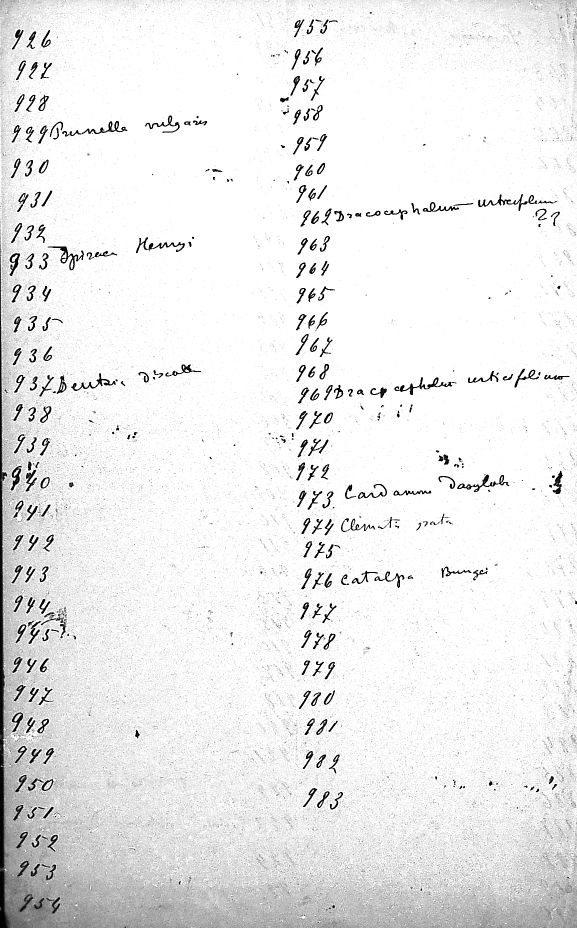 926
927
928
929 Brunella vulgaris
930
931
932
933 Spiraea Henryi
934
935
936
937 Deutzia discol
938
939
940
941
942
943
944
945
946
947
948
949
950
951
952
953
954
955
956
957
958
959
960
961
962 Dracocephalum urticifolium
??
963
964
965
966
967
968
969 Dracocephalum urticifolium
970
971
972
973 Cardamine dasyloba
974 Clematis
975
976 Catalpa Bungei
977
978
979
980
981
982
983